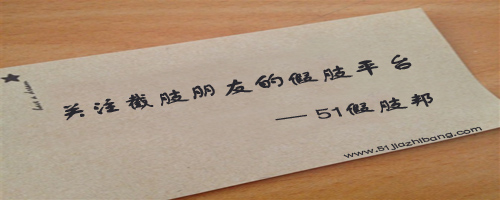 关注截肢朋友的假肢平台
— 51假肢邦
www.51jiazhibang.com